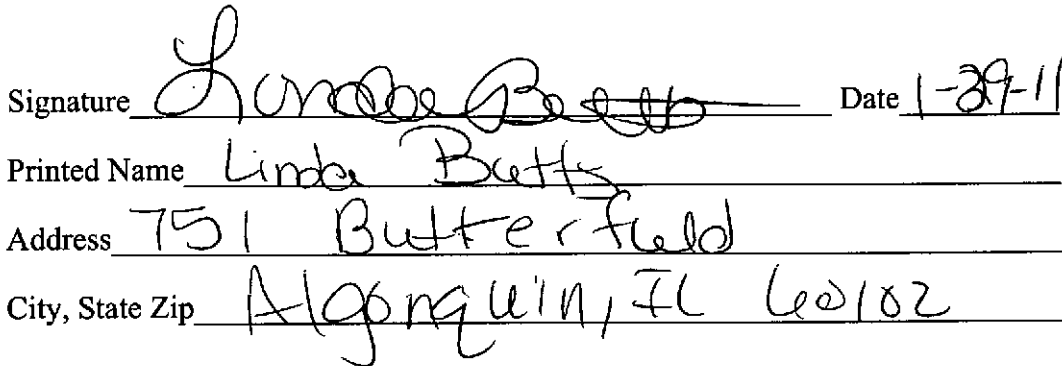 Signature Linda Butts Date 1-29-11
Printed Name Linda Butts
Address 751 Butterfield
City, State Zip Algonquin, IL 60102